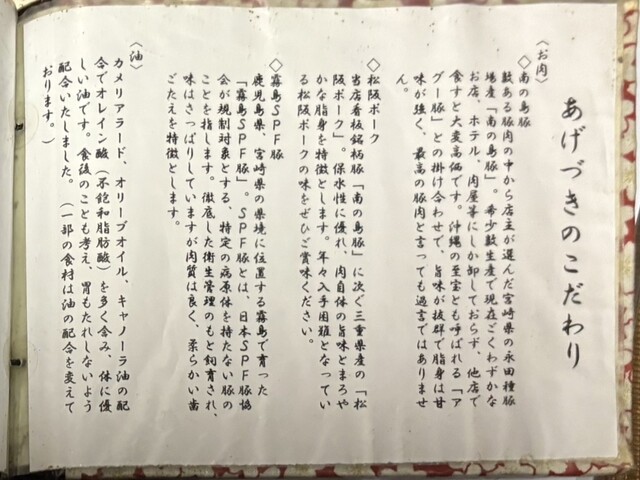 あげづきのこだわり
〈お肉〉
◇南の島豚
数ある豚肉の中から店主が選んだ宮崎県の永田種豚
場産「南の島豚」。希少数生産で現在ごくわずかな
お店、ホテル、肉屋等にしか卸しておらず、他店で
食すと大変高価です。沖縄の至宝とも呼ばれる「ア
グー豚」との掛け合わせで、旨味が抜群で脂身は甘
味が強く、最高の豚肉と言っても過言ではありませ
ん。
◇松阪ポーク
当店看板銘柄豚「南の島豚」に次ぐ三重県産の「松
阪ポーク」。保水性に優れ、肉自体の旨味とまろや
かな脂身を特徴とします。年々入手困難となってい
る松阪ポークの味をぜひご賞味ください。
◇霧島SPF豚
鹿児島県、宮崎県の県境に位置する霧島で育った
「霧島SPF豚」。SPF豚とは、日本SPF豚協
会が規制対象とする、特定の病原体を持たない豚の
ことを指します。徹底した衛生管理のもと飼育され、
味はさっぱりしていますが肉質は良く、柔らかい歯
ごたえを特徴とします。
〈油〉
カメリアラード、オリーブオイル、キャノーラ油の配
合でオレイン酸（不飽和脂肪酸）を多く含み、体に優
しい油です。食後のことも考え、胃もたれしないよう
配合いたしました。（一部の食材は油の配合を変えて
おります。）